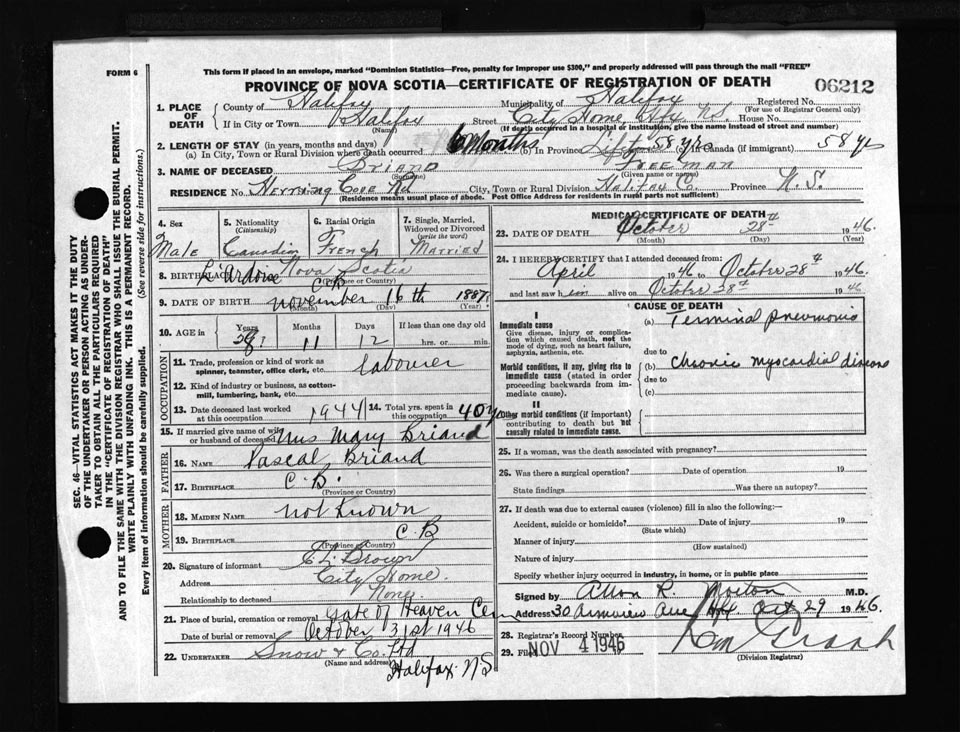 FORM 6
This form if placed in an envelope, marked "Dominion Statistics—Free, penalty for improper use $300," and properly addressed will pass through the mail "FREE"
PROVINCE OF NOVA SCOTIA—CERTIFICATE OF REGISTRATION OF DEATH
06212
SEC. 46—VITAL STATISTICS ACT MAKES IT THE DUTY
OF THE UNDERTAKER OR PERSON ACTING AS UNDER-
TAKER TO OBTAIN ALL THE PARTICULARS REQUIRED
IN THE "CERTIFICATE OF REGISTRATION OF DEATH"
AND TO FILE THE SAME WITH THE DIVISION REGISTRAR WHO SHALL ISSUE THE BURIAL PERMIT.
WRITE PLAINLY WITH UNFADING INK. THIS IS A PERMANENT RECORD.
Every item of information should be carefully supplied. (See reverse side for instructions.)
1. PLACE OF DEATH County of Halifax Municipality of Halifax Registered No.
(For use of Registrar General only)
If in City or Town Halifax Street City Home Hfx N.S. House No.
(Name) (If death occurred in a hospital or institution, give the name instead of street and number)
2. LENGTH OF STAY (in years, months and days)
(a) In City, Town or Rural Division where death occurred 6 Months (b) In Province Life 58 yrs Canada (if immigrant) 58 y
3. NAME OF DECEASED Briand Freeman
(Surname) (Given name or names)
RESIDENCE No. Herring Cove Rd City, Town or Rural Division Halifax Co. Province N.S.
(Residence means usual place of abode. Post Office Address for residents in rural parts not sufficient)
4. Sex Male
5. Nationality (Citizenship) Canadian
6. Racial Origin French
7. Single, Married, Widowed or Divorced (write the word) Married
8. BIRTHPLACE L'Ardoise C.B. Nova Scotia
(Province or Country)
9. DATE OF BIRTH November 16th 1887
(Month) (Day) (Year)
10. AGE in Years Months Days If less than one day old
58 11 12 hrs. or min.
OCCUPATION
11. Trade, profession or kind of work as spinner, teamster, office clerk, etc. Labourer
12. Kind of industry or business, as cotton-mill, lumbering, bank, etc.
13. Date deceased last worked at this occupation 1944
14. Total yrs. spent in this occupation 40 y
15. If married give name of wife or husband of deceased Mrs Mary Briand
FATHER
16. NAME Pascal Briand
17. BIRTHPLACE C.B.
(Province or Country)
MOTHER
18. MAIDEN NAME not known
19. BIRTHPLACE C.B
(Province or Country)
20. Signature of informant Brown
Address City Home.
Relationship to deceased None.
21. Place of burial, cremation or removal Gate of Heaven Cem
Date of burial or removal October 31st 1946
22. UNDERTAKER Snow & Co. Ltd
(Name and address) Halifax. N.S
MEDICAL CERTIFICATE OF DEATH
23. DATE OF DEATH October 28th 1946
(Month) (Day) (Year)
24. I HEREBY CERTIFY that I attended deceased from:
April 1946 to October 28th 1946.
and last saw him alive on October 28th 1946
CAUSE OF DEATH
I
Immediate cause
Give disease, injury or complication which caused death, not the mode of dying, such as heart failure, asphyxia, asthenia, etc.
(a) Terminal pneumonia
due to
Morbid conditions, if any, giving rise to immediate cause (stated in order proceeding backwards from immediate cause).
(b) Chronic myocardial disease
due to
(c)
II
Other morbid conditions (if important) contributing to death but not causally related to immediate cause.
25. If a woman, was the death associated with pregnancy?
26. Was there a surgical operation? Date of operation 19
State findings Was there an autopsy?
27. If death was due to external causes (violence) fill in also the following:—
Accident, suicide or homicide? Date of injury 19
(State which)
Manner of injury
(How sustained)
Nature of injury
Specify whether injury occurred in industry, in home, or in public place
Signed by Allan R. Morton M.D.
Address 30 Armview Ave Hfx Oct 29 1946.
28. Registrar's Record Number
29. Filed NOV 4 1946
(Division Registrar)